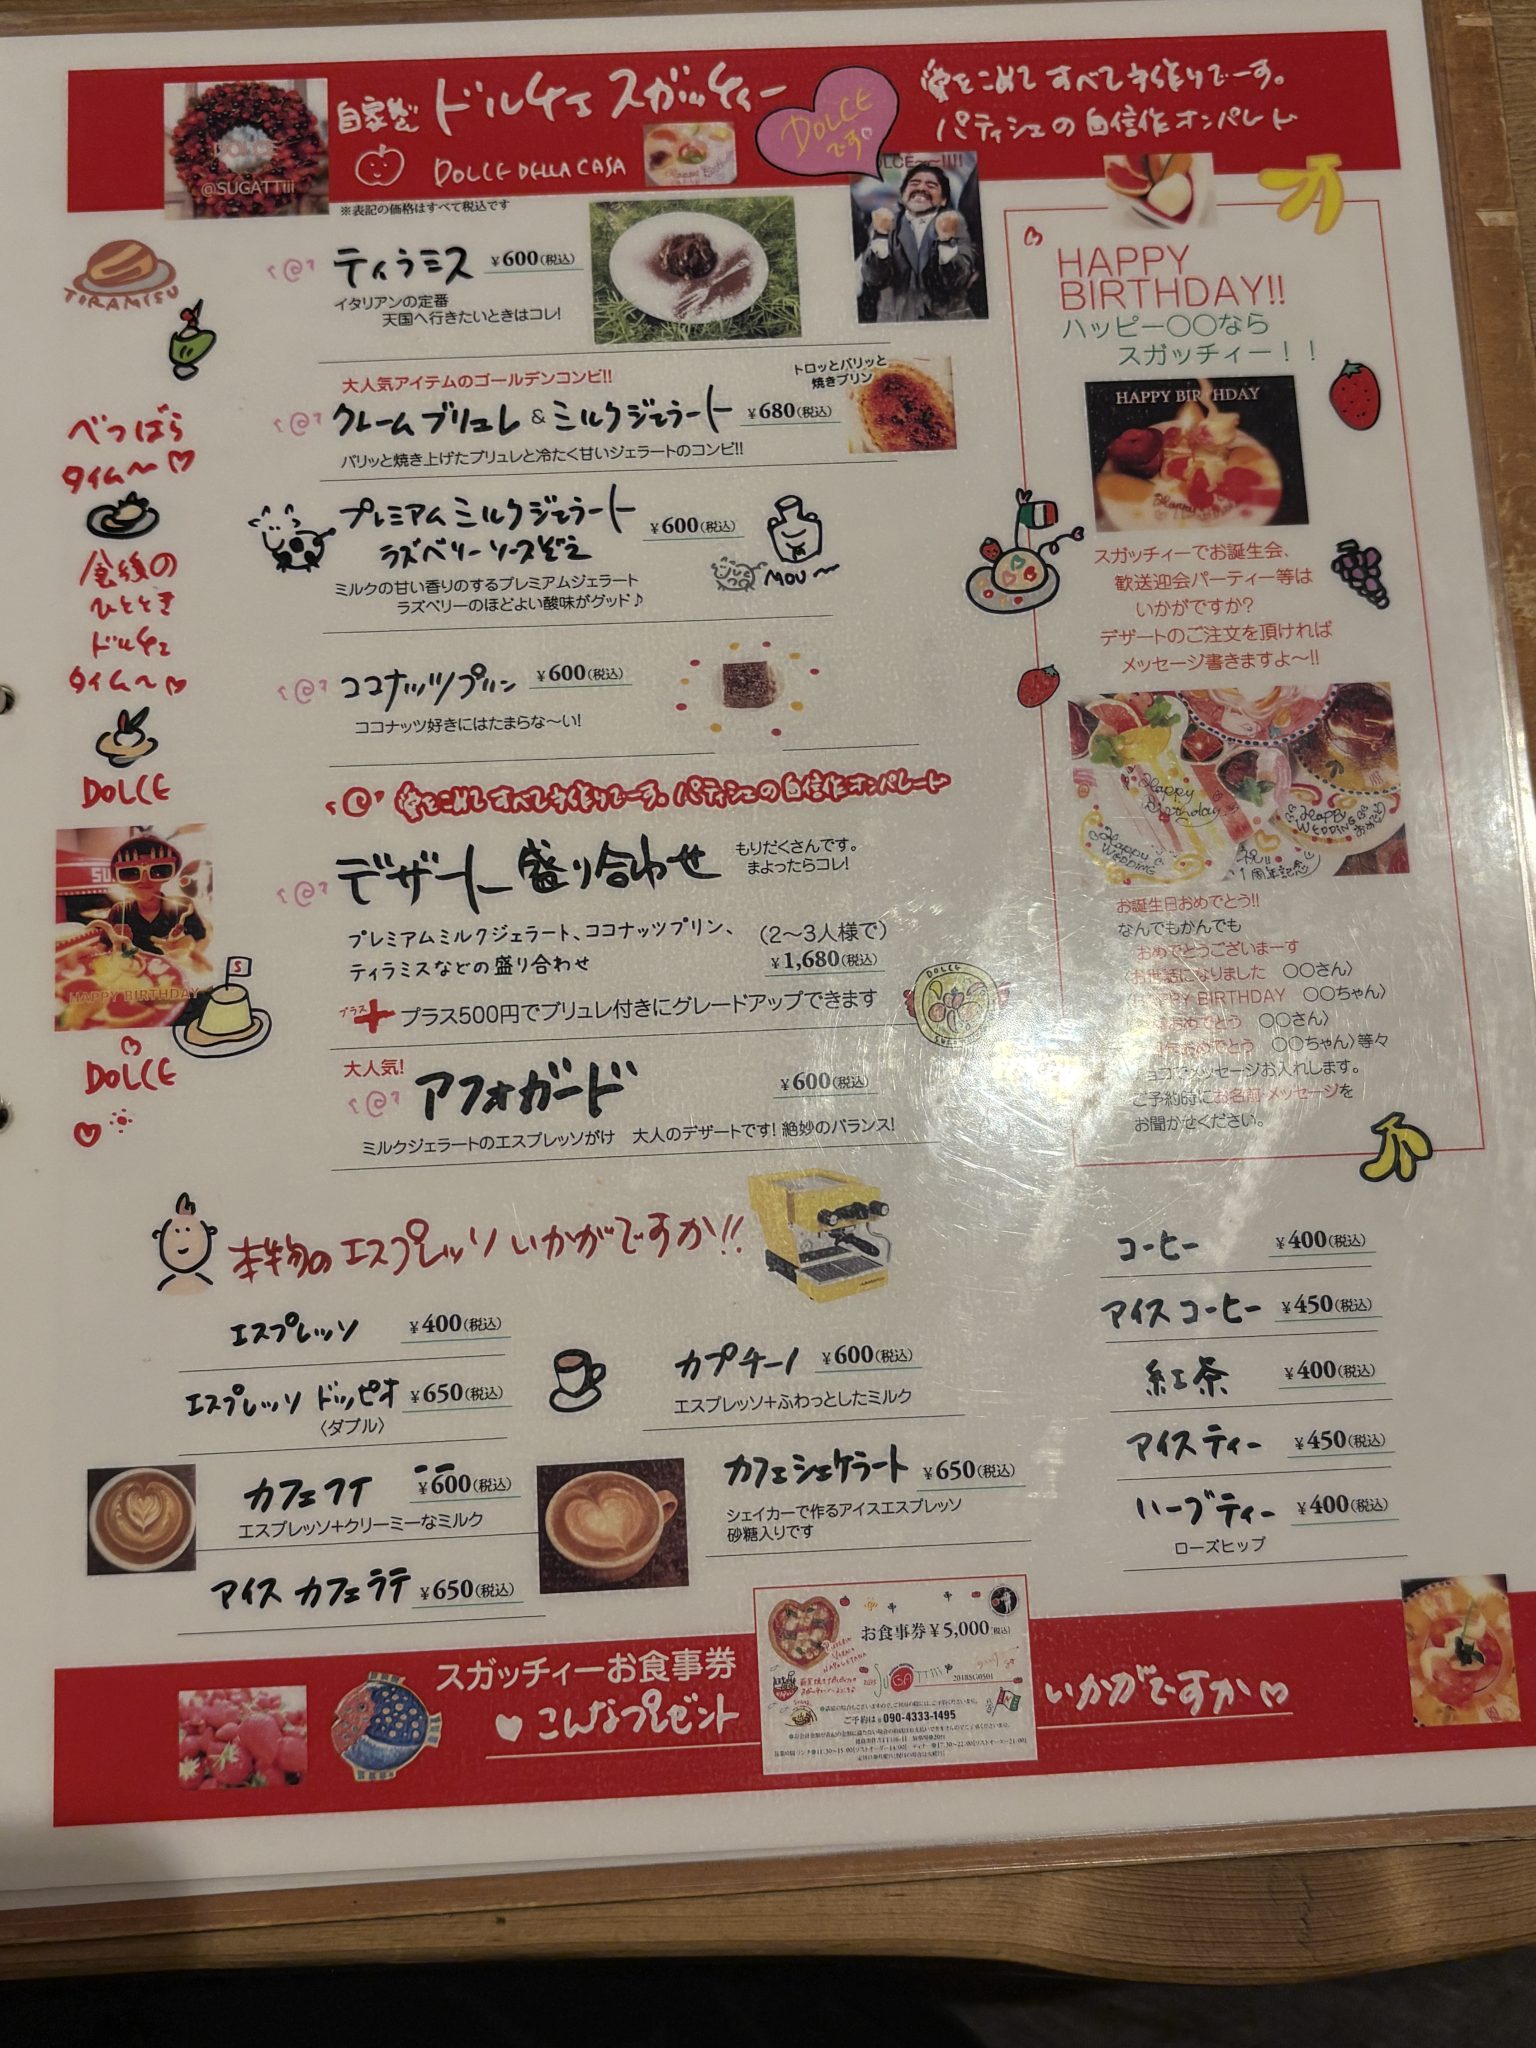 自家製 ドルチェ スガッチィー
DOLCE DELLA CASA
DOLCE
です♡
愛をこめて すべて手作りでーす。
パティシェの自信作オンパレード
DOLCE
@SUGATTiii
※表記の価格はすべて税込です
TIRAMISU
ティラミス ¥600(税込)
イタリアンの定番
天国へ行きたいときはコレ!
大人気アイテムのゴールデンコンビ!!
クレームブリュレ & ミルクジェラート ¥680(税込)
トロッとパリッと
焼きプリン
パリッと焼き上げたブリュレと冷たく甘いジェラートのコンビ!!
プレミアムミルクジェラート
ラズベリーソースぞえ ¥600(税込)
MOU〜
ミルクの甘い香りのするプレミアムジェラート
ラズベリーのほどよい酸味がグッド♪
ココナッツプリン ¥600(税込)
ココナッツ好きにはたまらな〜い!
愛をこめて すべて手作りでーす。パティシェの自信作オンパレード
デザート盛り合わせ
もりだくさんです。
まよったらコレ!
プレミアムミルクジェラート、ココナッツプリン、
ティラミスなどの盛り合わせ
(2〜3人様で)
¥1,680(税込)
プラス
+ プラス500円でブリュレ付きにグレードアップできます
大人気!
アフォガード ¥600(税込)
ミルクジェラートのエスプレッソがけ 大人のデザートです! 絶妙のバランス!
べつばら
タイム〜♡
食後の
ひととき
ドルチェ
タイム〜♡
DOLCE
HAPPY BIRTHDAY
DOLCE
HAPPY
BIRTHDAY!!
ハッピー〇〇なら
スガッチィー!!
HAPPY BIRTHDAY
スガッチィーでお誕生会、
歓送迎会パーティー等は
いかがですか?
デザートのご注文を頂ければ
メッセージ書きますよ〜!!
Happy
Birthday
Happy
WEDDING
HAPPY
WEDDING
おめでとう
祝!!
1周年記念
お誕生日おめでとう!!
なんでもかんでも
おめでとうございまーす
〈お世話になりました 〇〇さん〉
BIRTHDAY 〇〇ちゃん〉
おめでとう 〇〇さん〉
おめでとう 〇〇ちゃん〉等々
チョコでメッセージお入れします。
ご予約時にお名前・メッセージを
お聞かせください。
本物のエスプレッソいかがですか!!
エスプレッソ ¥400(税込)
エスプレッソ ドッピオ ¥650(税込)
〈ダブル〉
カフェラテ ¥600(税込)
エスプレッソ+クリーミーなミルク
アイス カフェラテ ¥650(税込)
カプチーノ ¥600(税込)
エスプレッソ+ふわっとしたミルク
カフェシェケラート ¥650(税込)
シェイカーで作るアイスエスプレッソ
砂糖入りです
コーヒー ¥400(税込)
アイスコーヒー ¥450(税込)
紅茶 ¥400(税込)
アイスティー ¥450(税込)
ハーブティー ¥400(税込)
ローズヒップ
スガッチィーお食事券
♥こんなプレゼント
お食事券¥5,000(税込)
20185G0501
ご予約は 090-4333-1495
いかがですか♡